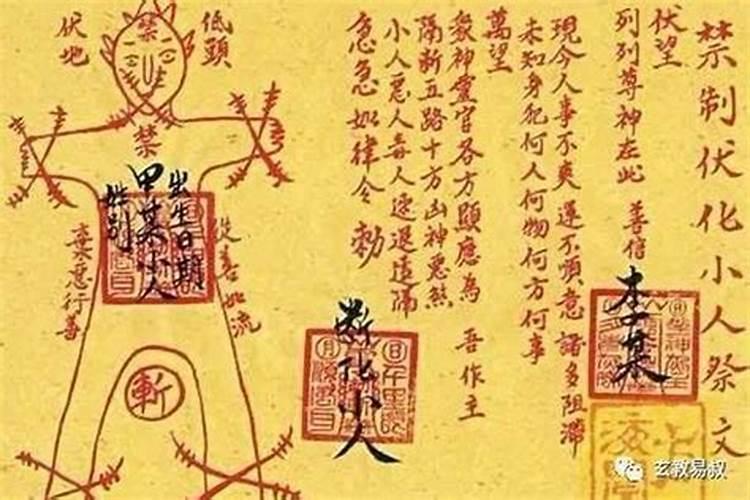 禁制伏化小人祭文
伏望
列列尊神在此 善信 李某
現今人事不爽運不順意諸多阻滯
未知身犯何人何物何方何事
萬望
衆神靈官各方顯應為 吾作主
隔斷五路十方凶神惡煞
小人惡人毒人速退遠隔
急急如律令 勅
斷化小人
低頭
禁
伏地
禁
出生日期
甲某小人
姓别
從善如流
棄惡行善
斬
玄教易叔